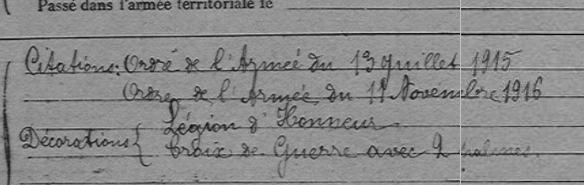 Passé dans l'armée territoriale le
Citations: Ordre de l'Armée du 13 Juillet 1915
Ordre de l'Armée du 11 Novembre 1916
Légion d'Honneur
Décorations { Croix de Guerre avec 2 palmes.